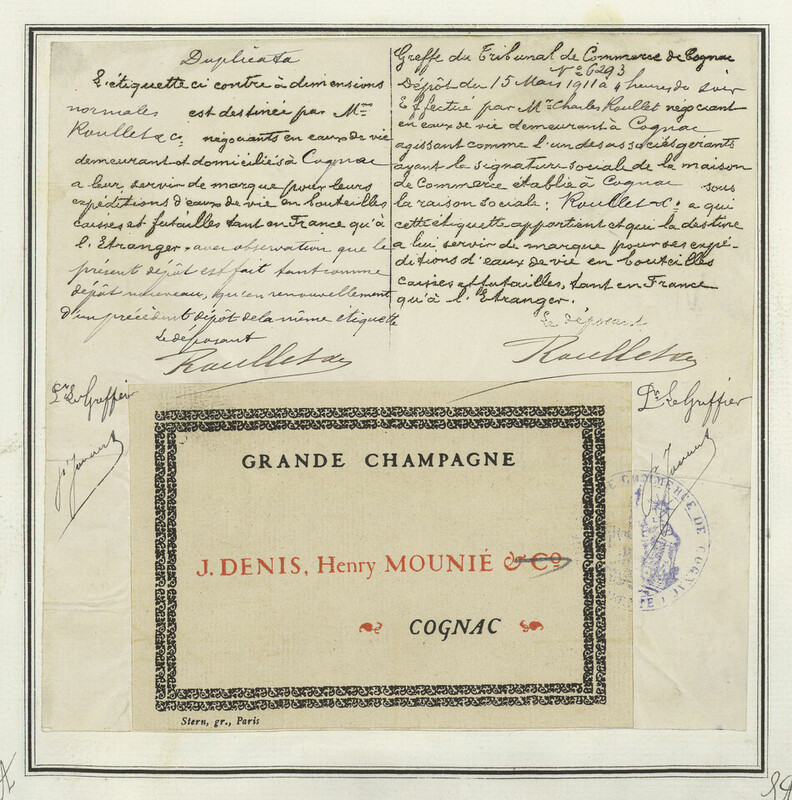 Duplicata
L'étiquette ci contre à dimensions
normales est destinée par Mrs
Roullet & Co négociants en eaux de vie
demeurant et domiciliés à Cognac
a leur servir de marque pour leurs
expéditions d'eaux de vie en bouteilles
caisses et futailles tant en France qu'à
l'Etranger, avec observation que le
présent dépôt est fait tant comme
dépôt nouveau, qu'en renouvellement
d'un précédent dépôt de la même étiquette
Le déposant
Roullet & Co
Greffe du Tribunal de Commerce de Cognac
No 6293
Dépôt du 15 Mars 1911 à heures du soir
Effectué par Mr Charles Roullet négociant
en eaux de vie demeurant à Cognac
agissant comme l'un des associés gérants
ayant la signature sociale de la maison
de Commerce établie à Cognac sous
la raison sociale; Roullet & Co a qui
cette étiquette appartient et qui la destine
a lui servir de marque pour ses expé-
ditions d'eaux de vie en bouteilles
caisses et futailles, tant en France
qu'à l'Etranger.
Le déposant
Roullet & Co
Le Greffier
Le Greffier
GRANDE CHAMPAGNE
J. DENIS, Henry MOUNIÉ & Co
COGNAC
Stern, gr., Paris
COMMERCE DE COGNAC